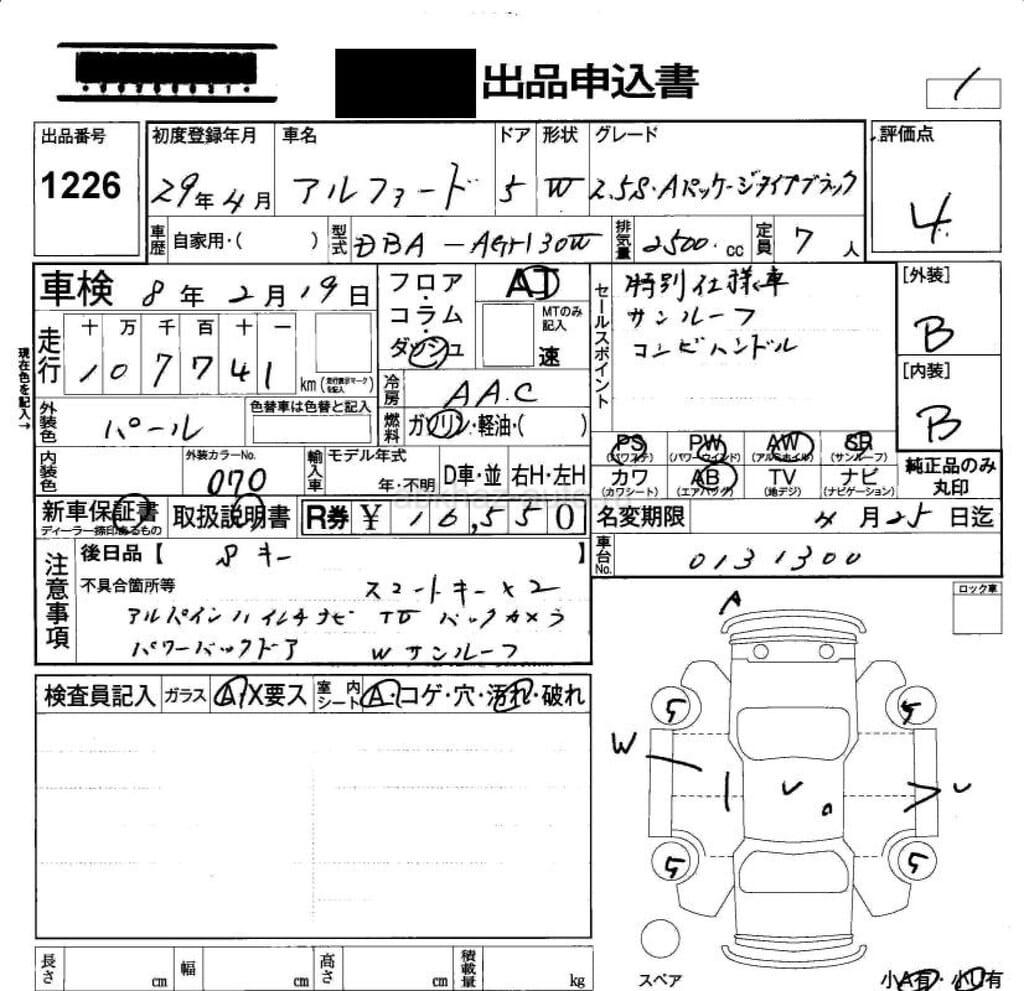 出品申込書
1
出品番号
1226
初度登録年月 車名 ドア 形状 グレード
29年4月 アルファード 5 W 2.5S・Aパッケージタイプブラック
評価点
4
車歴 自家用・( ) 型式 DBA-AGH30W 排気量 2500 cc 定員 7 人
車検 8年2月19日
フロア・コラム・ダッシュ
AT
MTのみ記入
速
セールスポイント
特別仕様車
サンルーフ
コンビハンドル
[外装]
B
[内装]
B
現在色を記入→
走行 十 万 千 百 十 一
107741 km (走行表示マークを記入)
冷房 AAC
外装色 パール 色替車は色替と記入
燃料 ガソリン・軽油・( )
PS (パワステ) PW (パワーウインド) AW (アルミホイル) SR (サンルーフ)
カワ (カワシート) AB (エアバッグ) TV (地デジ) ナビ (ナビゲーション)
純正品のみ丸印
内装色 外装カラーNo. 070 輸入車 モデル年式 年・不明 D車・並 右H・左H
新車保証書 ディーラー捺印あるもの 取扱説明書 R券 ¥ 16,550
名変期限 4月25日迄
車台No. 0131300
注意事項
後日品【 8キー 】
不具合箇所等 スマートキー×2
アルパインハイレゾナビ TV バックカメラ
パワーバックドア Wサンルーフ
ロック車
検査員記入 ガラス A・X要ス 室内シート A・コゲ・穴・汚れ・破れ
A
5 5
W
U U
5 5
スペア
小A有・小U有
長さ cm 幅 cm 高さ cm 積載量 kg